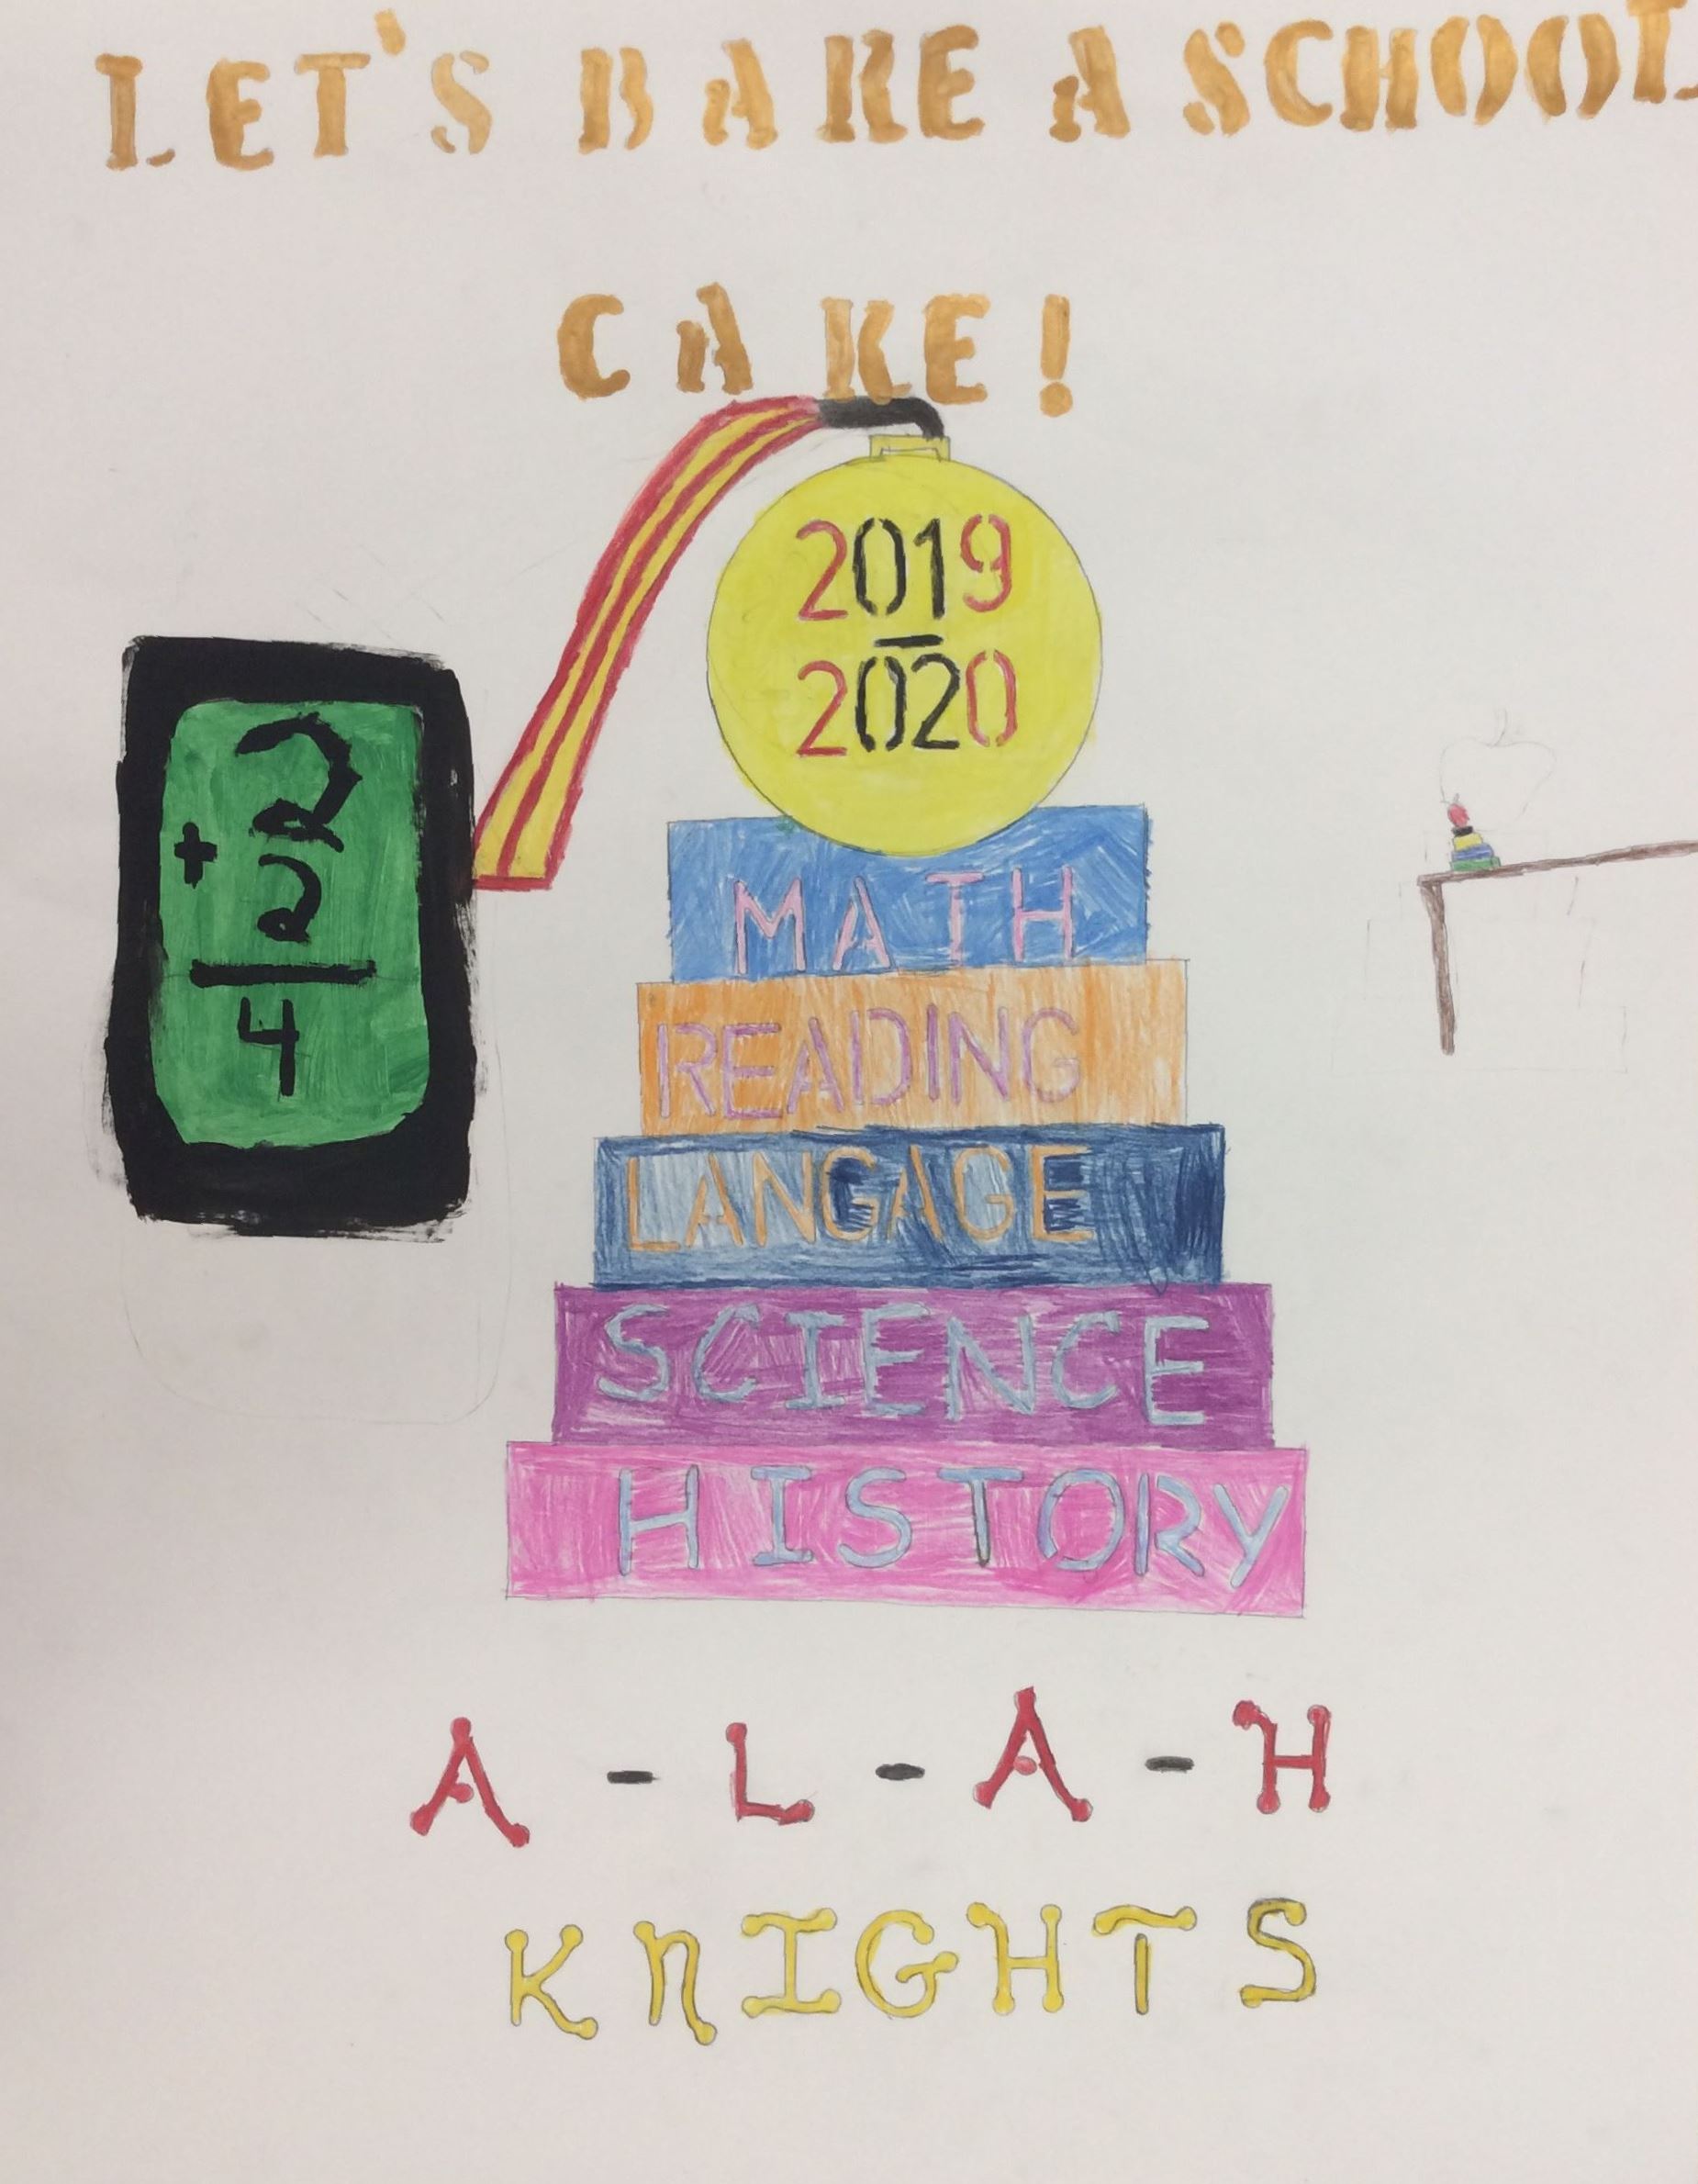 LET'S BAKE A SCHOOL
CAKE!
2019
-
2020
2
+ 2
4
MATH
READING
LANGAGE
SCIENCE
HISTORY
A-L-A-H
KNIGHTS